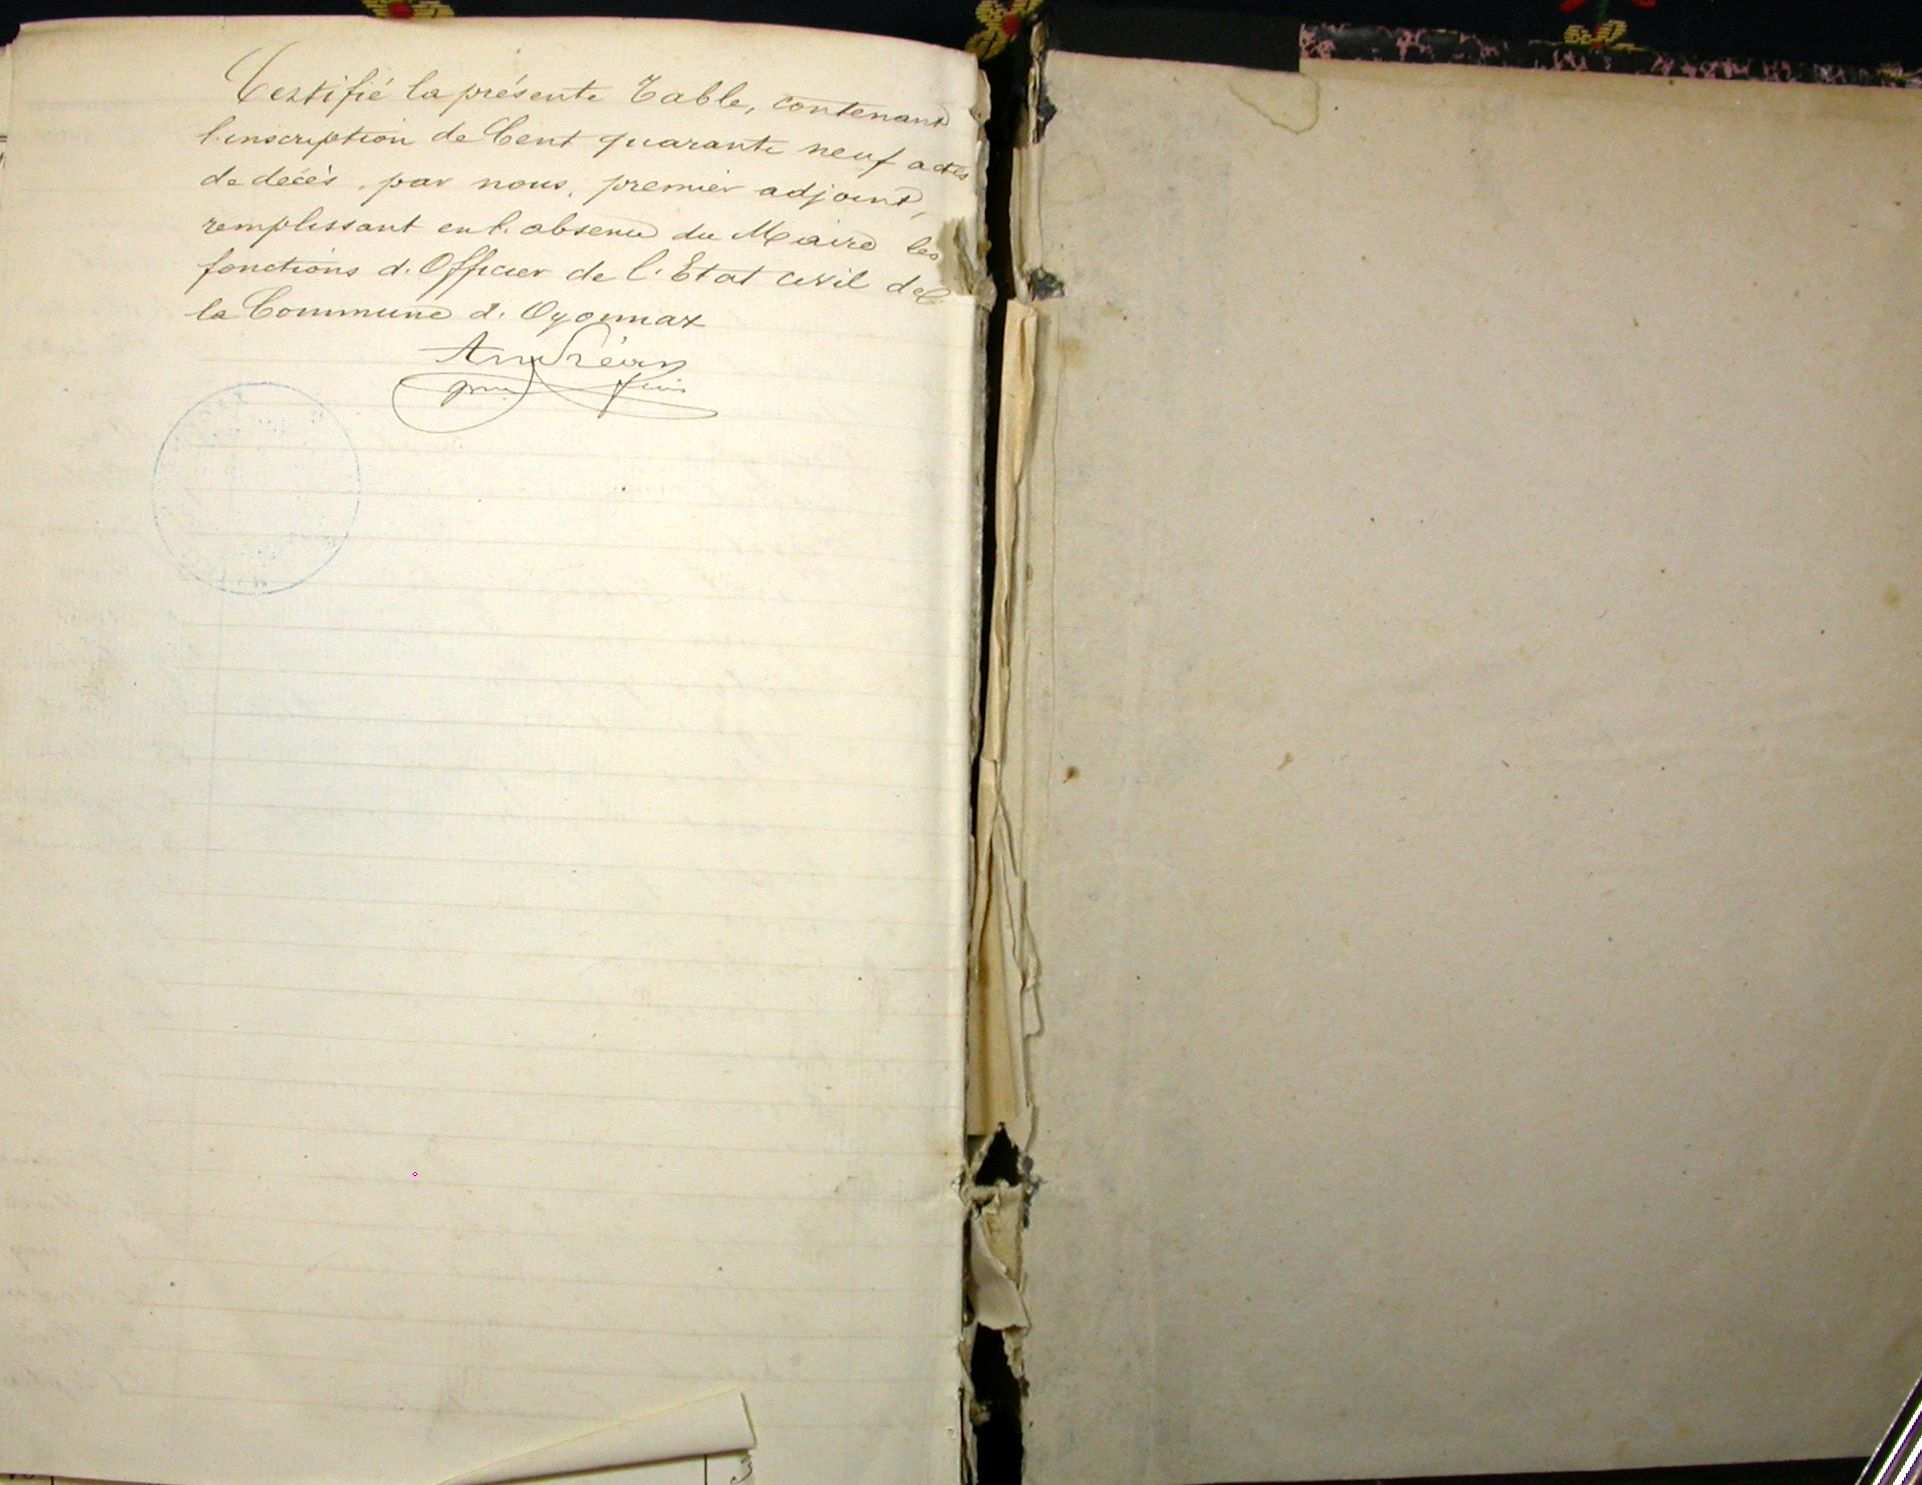 Certifié la présente Table, contenant
l'inscription de Cent quarante neuf actes
de décès, par nous, premier adjoint,
remplissant en l'absence du Maire les
fonctions d'Officier de l'Etat civil de
la Commune d'Oyonnax
3